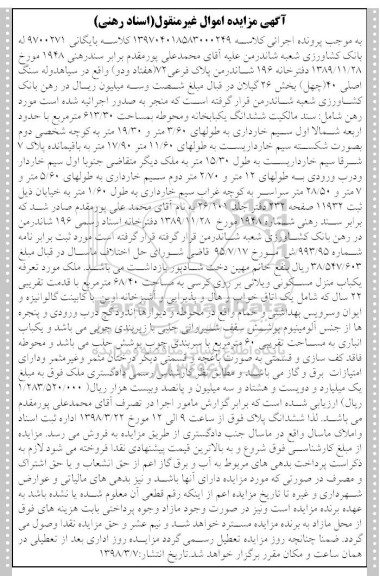 آگهی مزایده اموال غیرمنقول(اسناد رهنی)
به موجب پرونده اجرائی کلاسه ۱۳۹۷۰۴۰۱۸۵۸۳۰۰۰۲۴۹ کلاسه بایگانی ۹۷۰۰۲۷۱ له
بانک کشاورزی شعبه شاندرمن علیه آقای محمدعلی پورمقدم برابر سندرهنی ۱۹۴۸ مورخ
۱۳۸۹/۱۱/۲۸ دفترخانه ۱۹۶ شاندرمن پلاک فرعی ۷۲(هفتاد ودو) واقع در سیاهدوله سنگ
اصلی ۴۰(چهل) بخش ۲۶ گیلان در قبال مبلغ شصت وسه میلیون ریال در رهن بانک
کشاورزی شعبه شاندرمن قرار گرفته است که منجر به صدور اجرائیه شده است مورد
رهن شامل: سند مالکیت ششدانگ یکبابخانه ومحوطه بمساحت ۶۱۳/۳۰ مترمربع با حدود
اربعه شمالا اول سیم خارداری به طولهای ۳/۶۰ متر و ۱۹/۳۰ متر به کوچه شخصی دوم
بصورت شکسته سیم خارداریست به طولهای ۱۱/۶۰ متر و ۱۷/۹۰ متر به باقیمانده پلاک ۷
شرقا سیم خارداریست به طول ۱۵/۳۰ متر به ملک دیگر متقاضی جنوبا اول سیم خاردار
ودرب ورودی به طولهای ۱۲ متر و ۲/۷۰ متر دوم سیم خارداری به طولهای ۵/۶۰ متر و
۷ متر و ۲۸/۵۰ متر سراسر به کوچه غربا سیم خارداری به طول ۱/۶۰ متر به خیابان ذیل
ثبت ۱۱۹۳۲ صفحه ۲۳۲ دفتر جلد ۲۶/۱۰۱ به نام آقای محمد علی پورمقدم صادر شد که
برابر سند رهنی شماره ۱۹۴۸ مورخ ۱۳۸۹/۱۱/۲۸ دفترخانه اسناد رسمی ۱۹۶ شاندرمن
در رهن بانک کشاورزی شعبه شاندرمن قرار گرفته قرار گرفته است مورد ثبت برابر نامه
شماره ۹۹۳/۹۵ ش مورخ ۹۵/۷/۱۷ قاضی شورای حل اختلاف ماسال در قبال مبلغ
۳۸/۵۴۷/۶۰۳ ریال بنفع خانم مهین دخت شادپور بازداشت می باشد. ملک مورد تعرفه
یکباب منزل مسکونی ویلائی بر روی کرسی به مساحت ۶۸/۴۰ مترمربع با قدمت تقریبی
۲۲ سال که شامل یک اتاق خواب و هال و پذیرایی و آشپزخانه اوپن با کابینت گالوانیزه و
ایوان وسرویس بهداشتی و حمام واقع در محوطه و دیوارها اندود گچ درب ورودی و پنجره
ها از جنس آلومینیوم پوشش سقف شیروانی حلبی با زیربندی چوبی می باشد و یکباب
انباری به مساحت تقریبی ۶۰ مترمربع با سربندی چوب پوشش حلب می باشد و محوطه
فاقد کف سازی و قسمتی به صورت باغچه و قسمتی دیگر درختان مثمر وغیرمثمر ودارای
امتیازات برق و گاز می باشد و مطابق نظر کارشناس رسمی دادگستری ملک فوق به مبلغ
یک میلیارد و دویست و هشتاد و سه میلیون و پانصد وبیست هزار ریال( ۱/۲۸۳/۵۲۰/۰۰۰
ریال) ارزیابی شده است که برابر گزارش مامور اجرا در تصرف آقای محمدعلی پورمقدم
می باشد. لذا ششدانگ پلاک فوق از ساعت ۹ الی ۱۲ مورخ ۱۳۹۸/۳/۲۲ اداره ثبت اسناد
واملاک ماسال واقع در ماسال جنب دادگستری از طریق مزایده به فروش می رسد. مزایده
از مبلغ کارشناسی فوق شروع و به بالاترین قیمت پیشنهادی نقدا فروخته می شود لازم به
ذکراست پرداخت بدهی های مربوط به آب و برق گاز اعم از حق انشعاب و یا حق اشتراک
و مصرف در صورتی که مورد مزایده دارای آنها باشد و نیز بدهی های مالیاتی و عوارض
شهرداری و غیره تا تاریخ مزایده اعم از اینکه رقم قطعی آن معلوم شده یا نشده باشد به
عهده برنده مزایده است ونیز در صورت وجود مازاد وجوه پرداختی بابت هزینه های فوق
از محل مازاد به برنده مزایده مسترد خواهد شد و نیم عشر و حق مزایده نقدا وصول می
گردد. ضمنا چنانچه روز مزایده تعطیل رسمی گردد مزایده روز اداری بعد از تعطیلی در
همان ساعت و مکان مقرر برگزار خواهد شد.تاریخ انتشار:۱۳۹۸/۳/۷